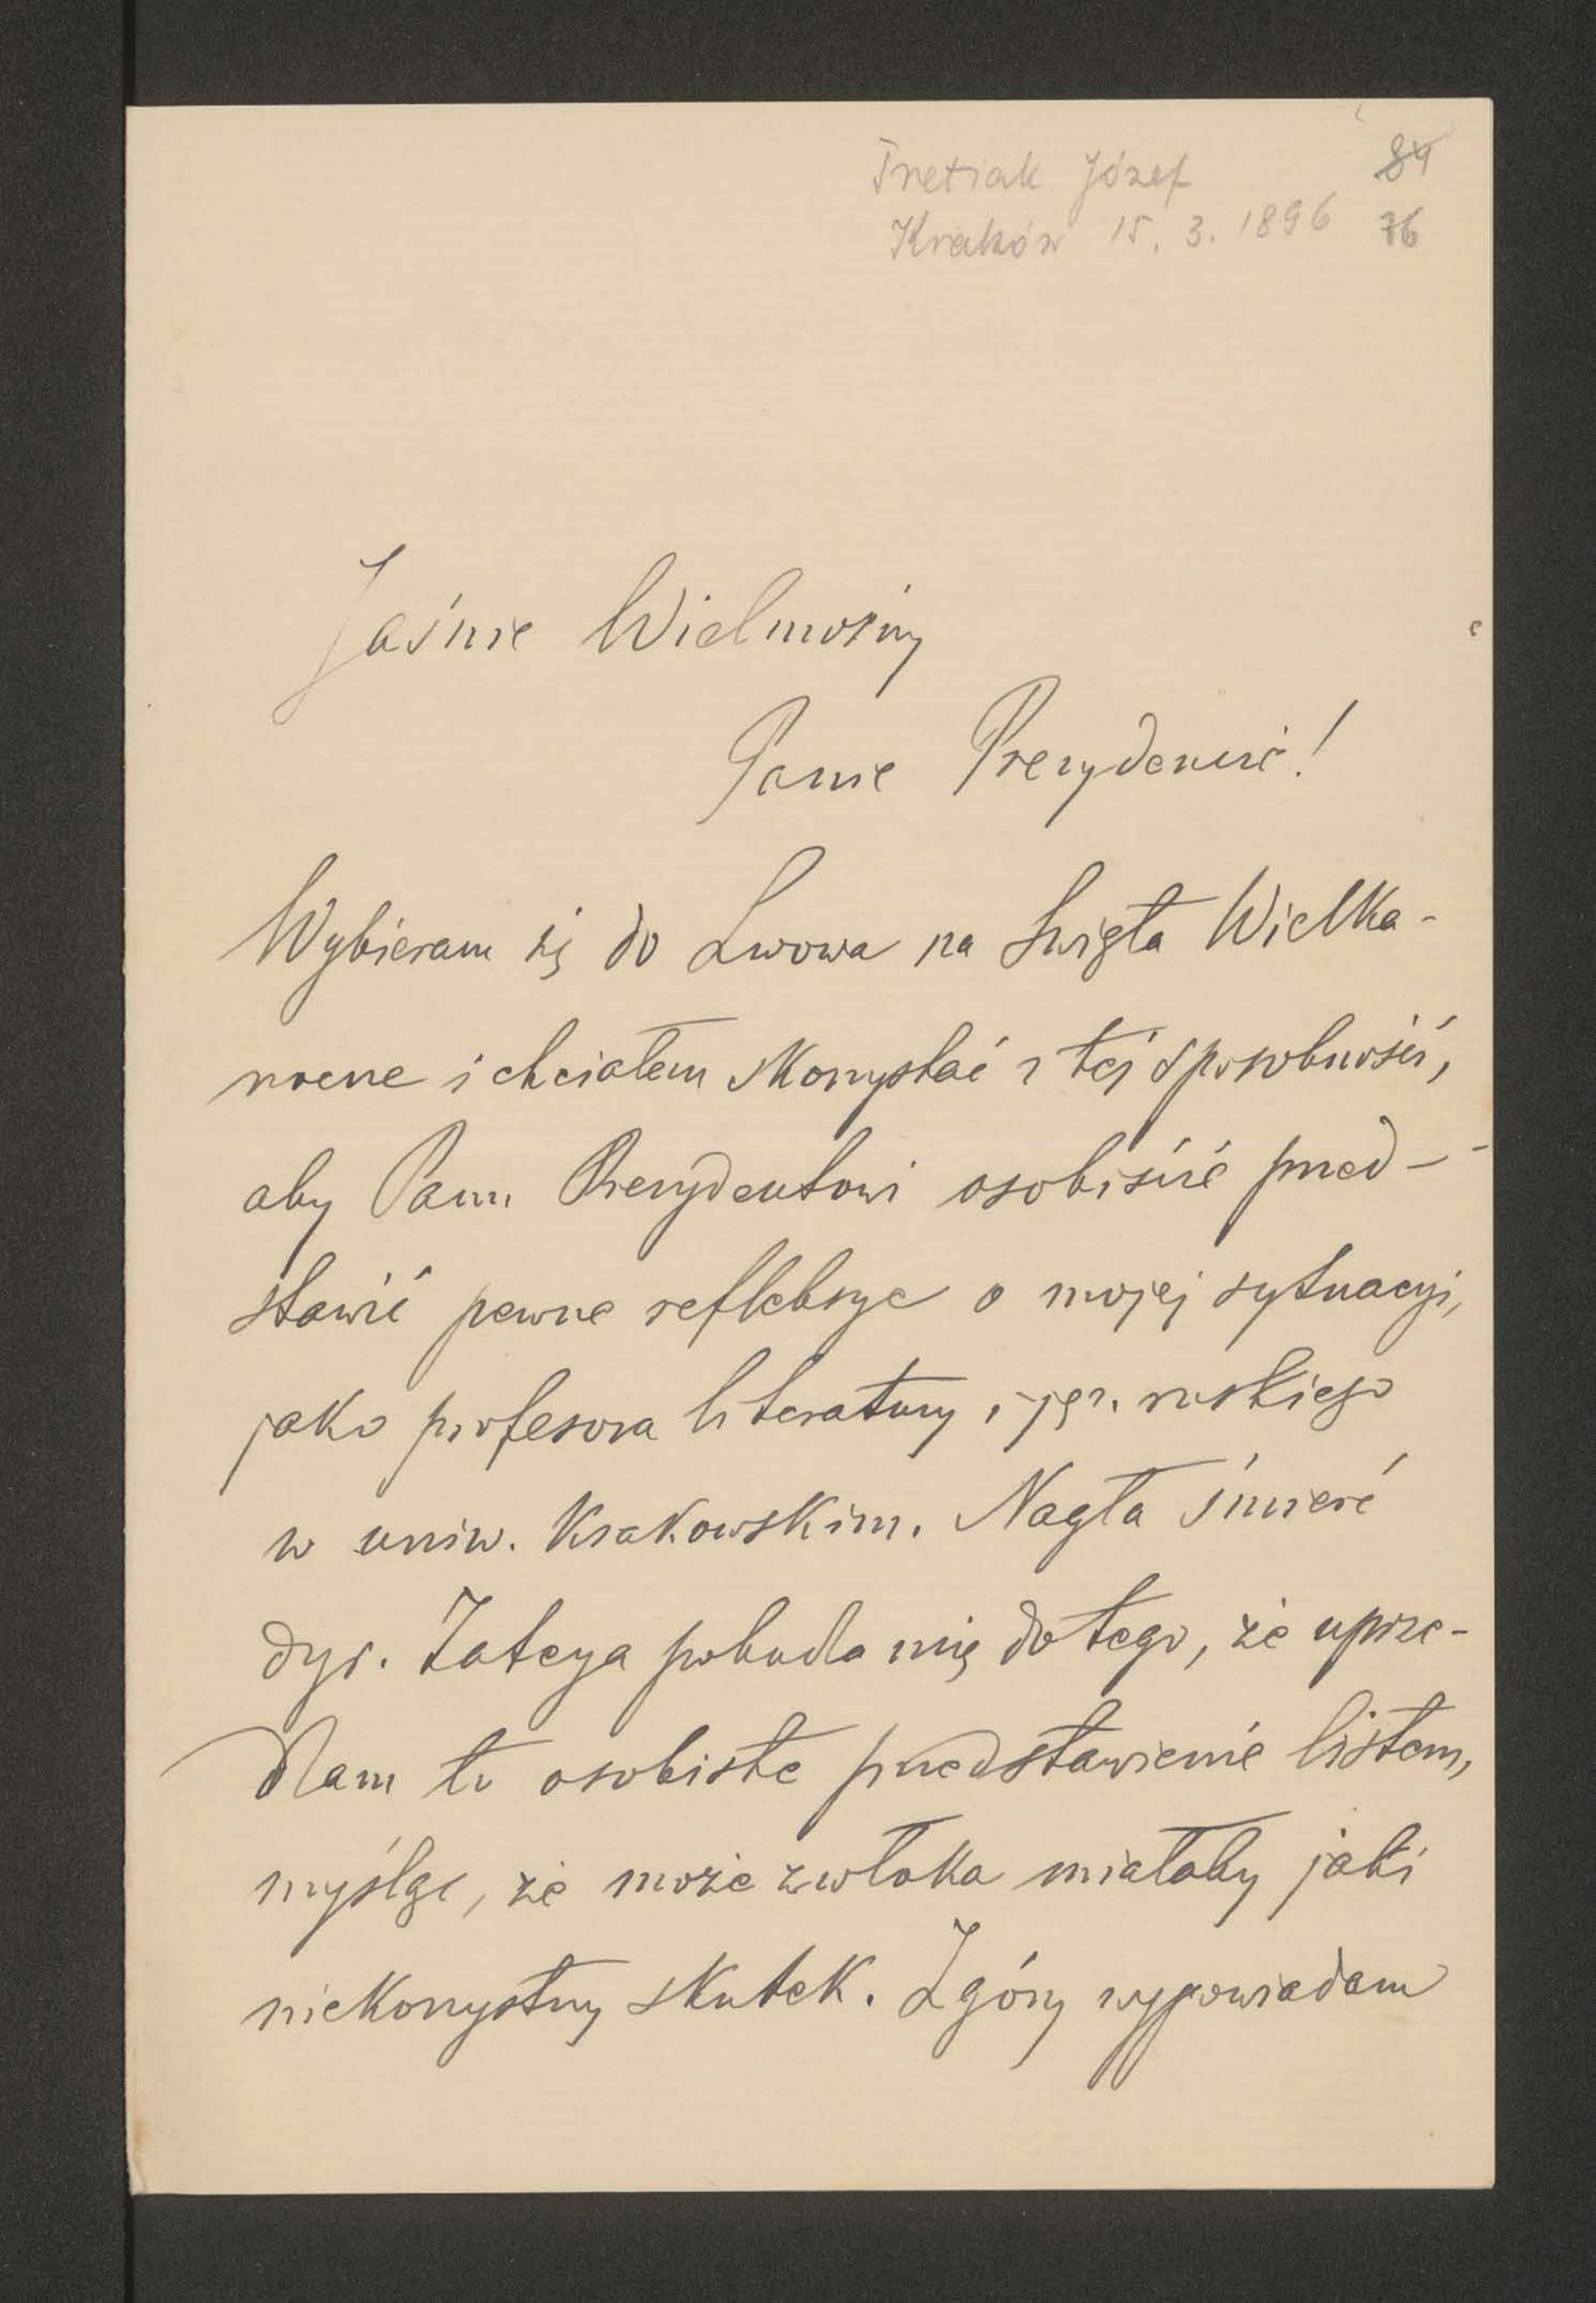 Tretiak Józef 84
Kraków 15. 3. 1896 76
Jaśnie Wielmożny
Panie Prezydencie!
Wybieram się do Lwowa na święta Wielka-
nocne i chciałem skorzystać z tej sposobności,
aby Panu Prezydentowi osobiście przed-
stawić pewne refleksye o mojej sytuacyi,
jako profesora literatury i jęz. ruskiego
w uniw. Krakowskim. Nagła śmierć
dyr. Zateya pobudza mię do tego, że uprze-
dzam to osobiste przedstawienie listem,
myśląc, że może zwłoka miałaby jaki
niekorzystny skutek. Zgóry wypowiadam